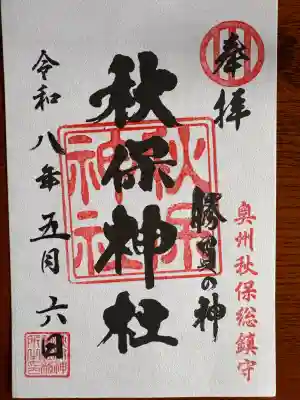 奉拝
奥州秋保総鎮守
勝負の神
秋保神社
秋保神社
令和八年五月六日